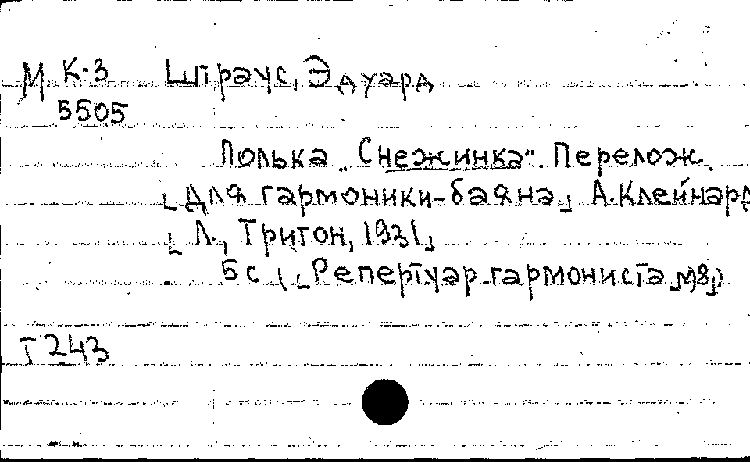 М К-3 Штраус, Эдуард
5505
Полька „Снежинка“. Перелож.
[для гармоники-баяна] А. Клейнард
[Л., Тритон, 1931]
5 с ([Репертуар гармониста №8])
Т 243